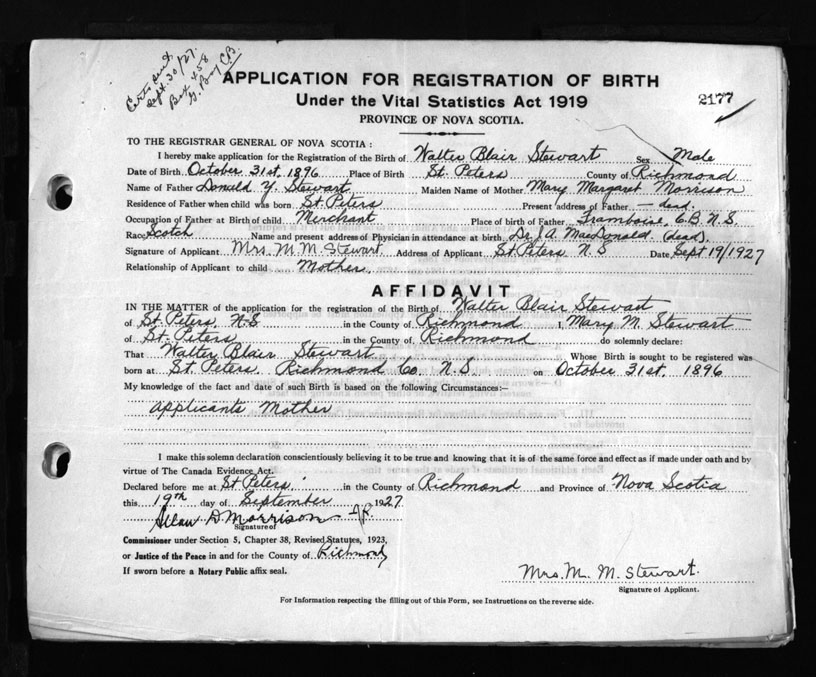 Certs sent
Sept. 30/27.
Box 458
G. Bay C.B.
APPLICATION FOR REGISTRATION OF BIRTH
Under the Vital Statistics Act 1919
2177
PROVINCE OF NOVA SCOTIA.
TO THE REGISTRAR GENERAL OF NOVA SCOTIA:
I hereby make application for the Registration of the Birth of Walter Blair Stewart Sex Male
Date of Birth October 31st, 1896 Place of Birth St. Peters County of Richmond
Name of Father Donald Y. Stewart Maiden Name of Mother Mary Margaret Morrison
Residence of Father when child was born St Peters Present address of Father — dead.
Occupation of Father at Birth of child Merchant Place of birth of Father Framboise, C.B. N.S.
Race Scotch Name and present address of Physician in attendance at birth Dr. J. A. MacDonald (dead).
Signature of Applicant Mrs. M. M. Stewart Address of Applicant St Peters N S Date Sept 19/1927
Relationship of Applicant to child Mother.
AFFIDAVIT
IN THE MATTER of the application for the registration of the Birth of Walter Blair Stewart
of St. Peters, N.S in the County of Richmond I, Mary M. Stewart
of St. Peters in the County of Richmond do solemnly declare:
That Walter Blair Stewart Whose Birth is sought to be registered was
born at St. Peters. Richmond Co. N.S. on October 31st. 1896
My knowledge of the fact and date of such Birth is based on the following Circumstances:—
Applicants Mother
I make this solemn declaration conscientiously believing it to be true and knowing that it is of the same force and effect as if made under oath and by
virtue of The Canada Evidence Act.
Declared before me at St Peters in the County of Richmond and Province of Nova Scotia
this 19th day of September 1927
Allan D Morrison J.P.
Signature of
Commissioner under Section 5, Chapter 38, Revised Statutes, 1923,
or Justice of the Peace in and for the County of Richmond
If sworn before a Notary Public affix seal.
Mrs. M. M. Stewart.
Signature of Applicant.
For Information respecting the filling out of this Form, see Instructions on the reverse side.